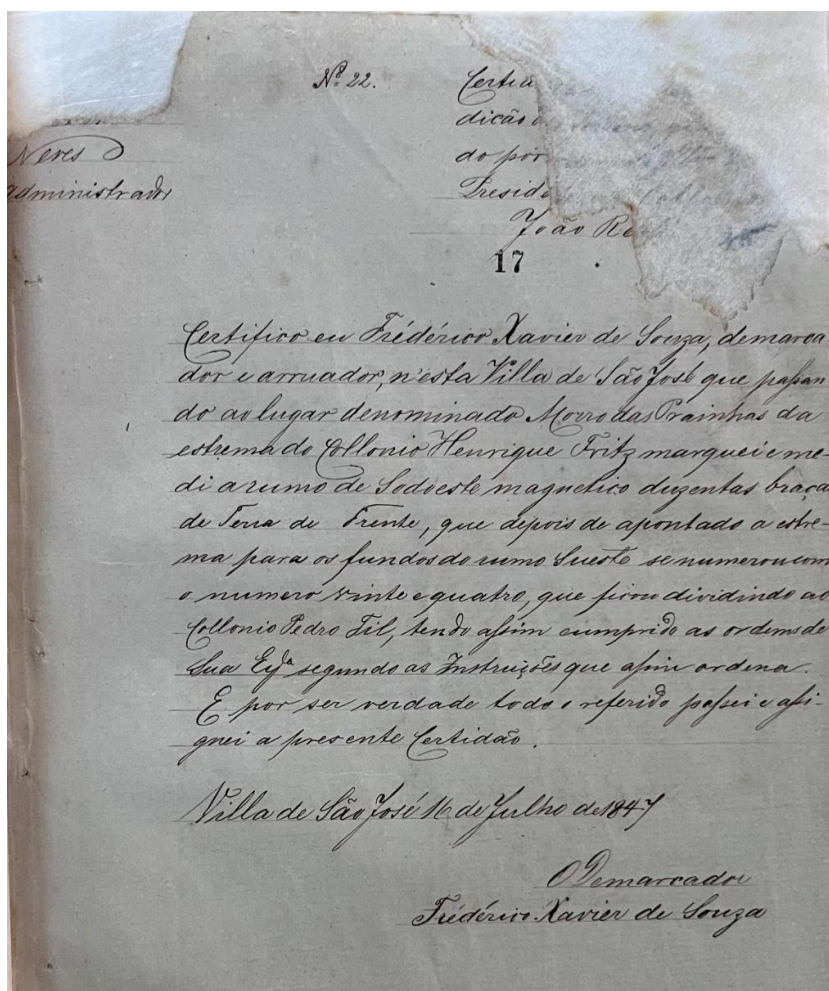 Nº 22.
Neves
administrador
Certi
dicão
do por
Presid
João Re
17
Certifico eu Frédérico Xavier de Souza, demarca-
dor e arruador, n'esta Villa de São José que passan
do ao lugar denominado Morro das Prainhas da
estrema do Collonio Henrique Fritz marquei e me-
di a rumo de Sodoeste magnetico duzentas braça
de Terra de Frente, que depois de apontado a estre-
ma para os fundos do rumo Sueste se numerou com
o numero vinte e quatro, que ficou dividindo ao
Collonio Pedro Fil, tendo assim cumprido as ordems de
Sua Exª segundo as Instruções que assim ordena.
E por ser verdade todo o referido passei e assi-
gnei a presente Certidão.
Villa de São José 16 de Julho de 1847
O Demarcador
Frédérico Xavier de Souza